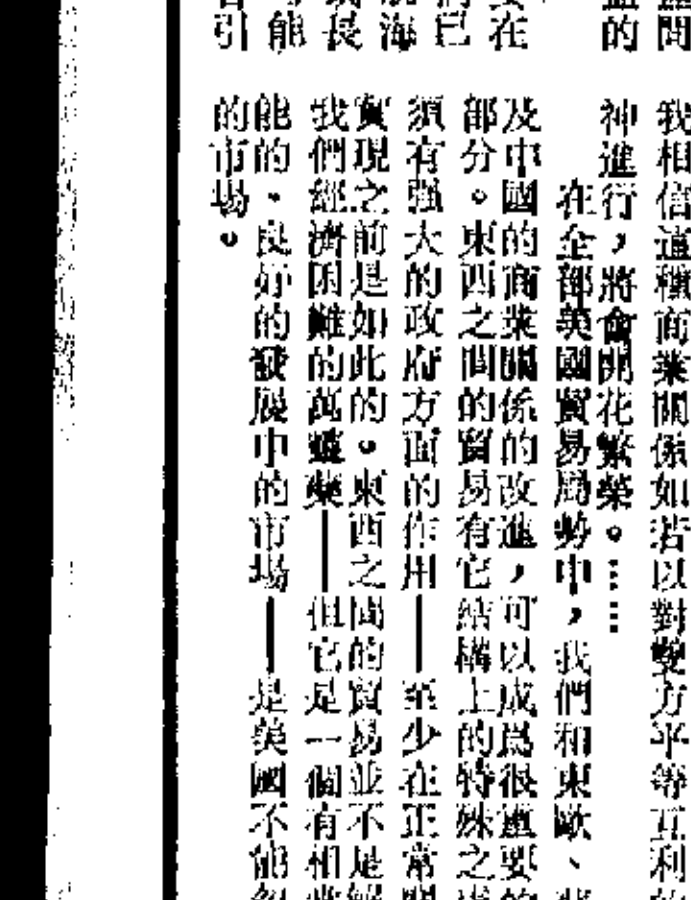 間
的
在
已
海
長
能
引
我相信這種商業關係如若以對雙方平等互利
神進行，將會開花繁榮。……
在全部美國貿易局勢中，我們和東歐、
及中國的商業關係的改進，可以成爲很重要的
部分。東西之間的貿易有它結構上的特殊之
須有强大的政府方面的作用——至少在正常
實現之前是如此的。東西之間的貿易並不是
我們經濟困難的萬靈藥——但它是一個有相
能的、良好的發展中的市場——是美國不能
的市場。